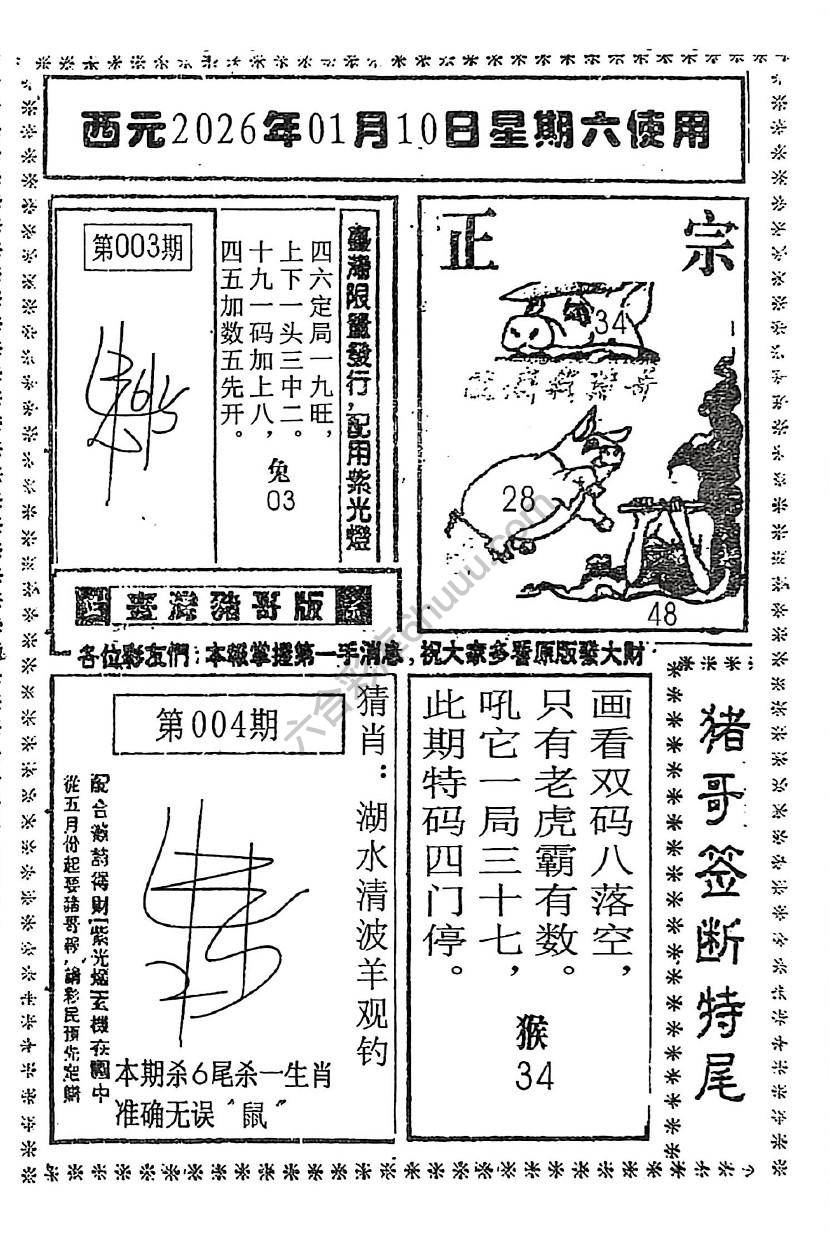 西元2026年01月10日星期六使用
第003期
臺灣限量發行，配用紫光燈
四六定局一九旺，
上下一头三中二。
十九一码加上八，
四五加数五先开。
兔
03
正宗
34
28
48
臺灣豬哥版
各位彩友們：本報掌握第一手消息，祝大家多看原版發大財
第004期
猜肖：湖水清波羊观钓
配合激詩得財
紫光燈玄機在圖中
從五月份起要豬哥報，請彩民預先定購
本期杀6尾杀一生肖
准确无误“鼠”
画看双码八落空，
只有老虎霸有数。
吼它一局三十七，
此期特码四门停。
猴
34
猪哥签断特尾
六合彩库chuuu.com